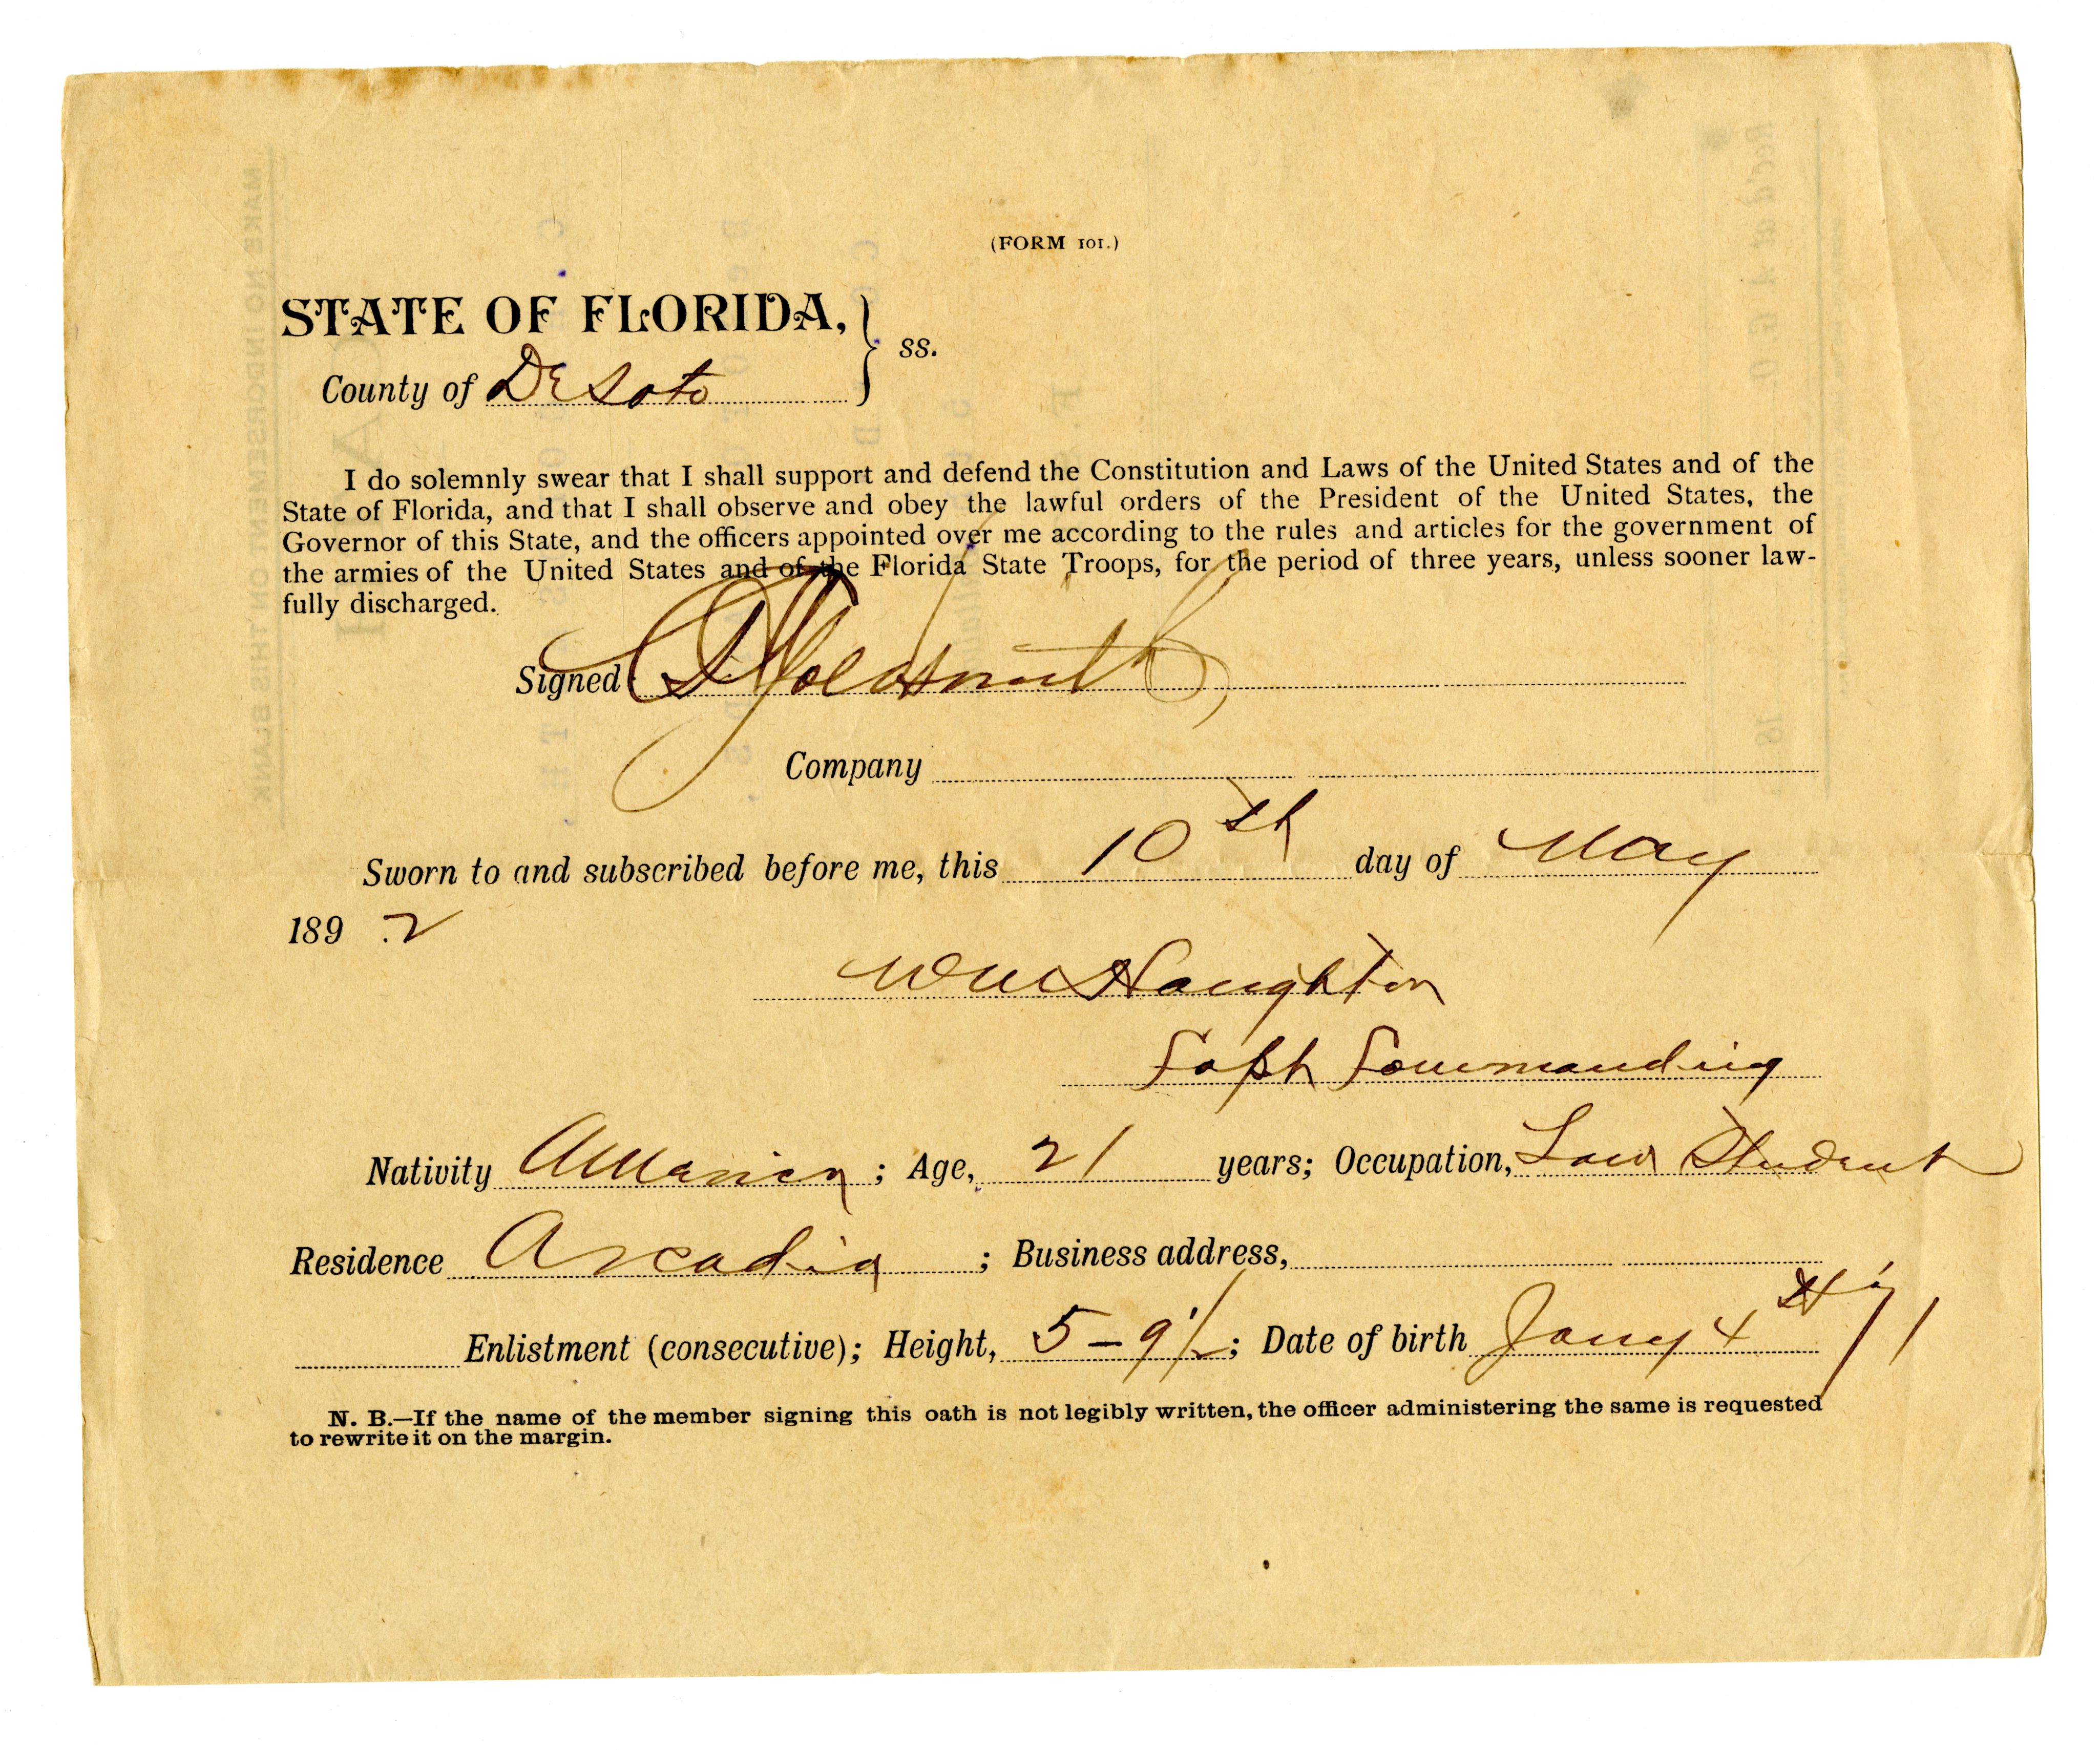 (FORM 101.)
STATE OF FLORIDA,
ss.
County of DeSoto
I do solemnly swear that I shall support and defend the Constitution and Laws of the United States and of the
State of Florida, and that I shall observe and obey the lawful orders of the President of the United States, the
Governor of this State, and the officers appointed over me according to the rules and articles for the government of
the armies of the United States and of the Florida State Troops, for the period of three years, unless sooner law-
fully discharged.
Signed Goldsmith
Company
Sworn to and subscribed before me, this 10th day of May
1892
Wm Haughton
Capt Commanding
Nativity American; Age, 21 years; Occupation, Law Student
Residence Arcadia; Business address,
Enlistment (consecutive); Height, 5-9 1/2; Date of birth Jany 4th '71
N. B.—If the name of the member signing this oath is not legibly written, the officer administering the same is requested
to rewrite it on the margin.
MAKE NO INDORSEMENT ON THIS BLANK
OATH
Rec'd at A. G. O.